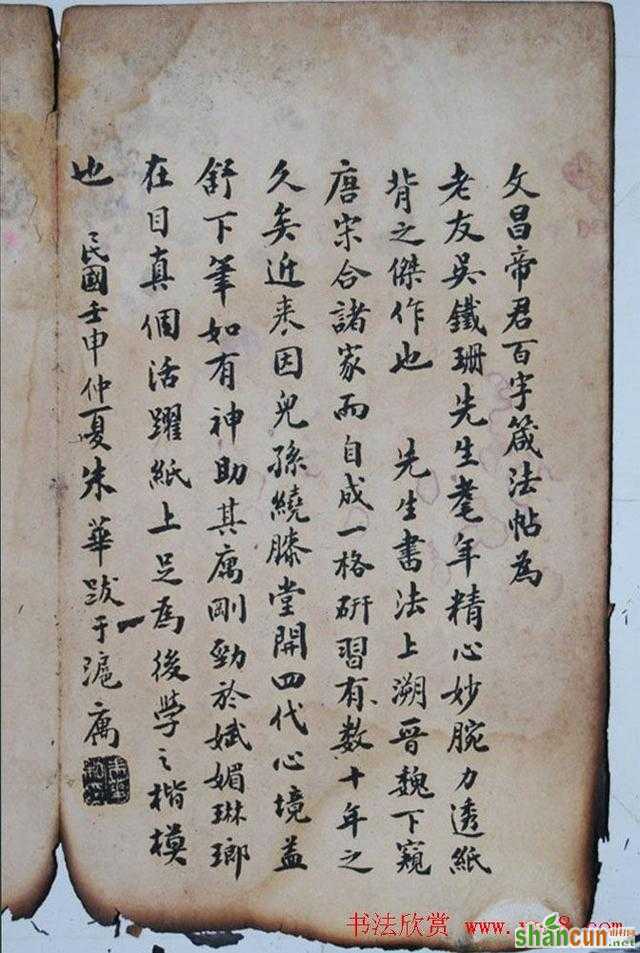 文昌帝君百字箴法帖為
老友吳鐵珊先生耄年精心妙腕力透紙
背之傑作也 先生書法上溯晉魏下窺
唐宋合諸家而自成一格研習有數十年之
久矣近來因兒孫繞膝堂開四代心境益
舒下筆如有神助其寓剛勁於斌媚琳瑯
在目真個活躍紙上足為後學之楷模
也 民國壬申仲夏朱華跋于滬寓
书法欣赏 www.
shancun
.net